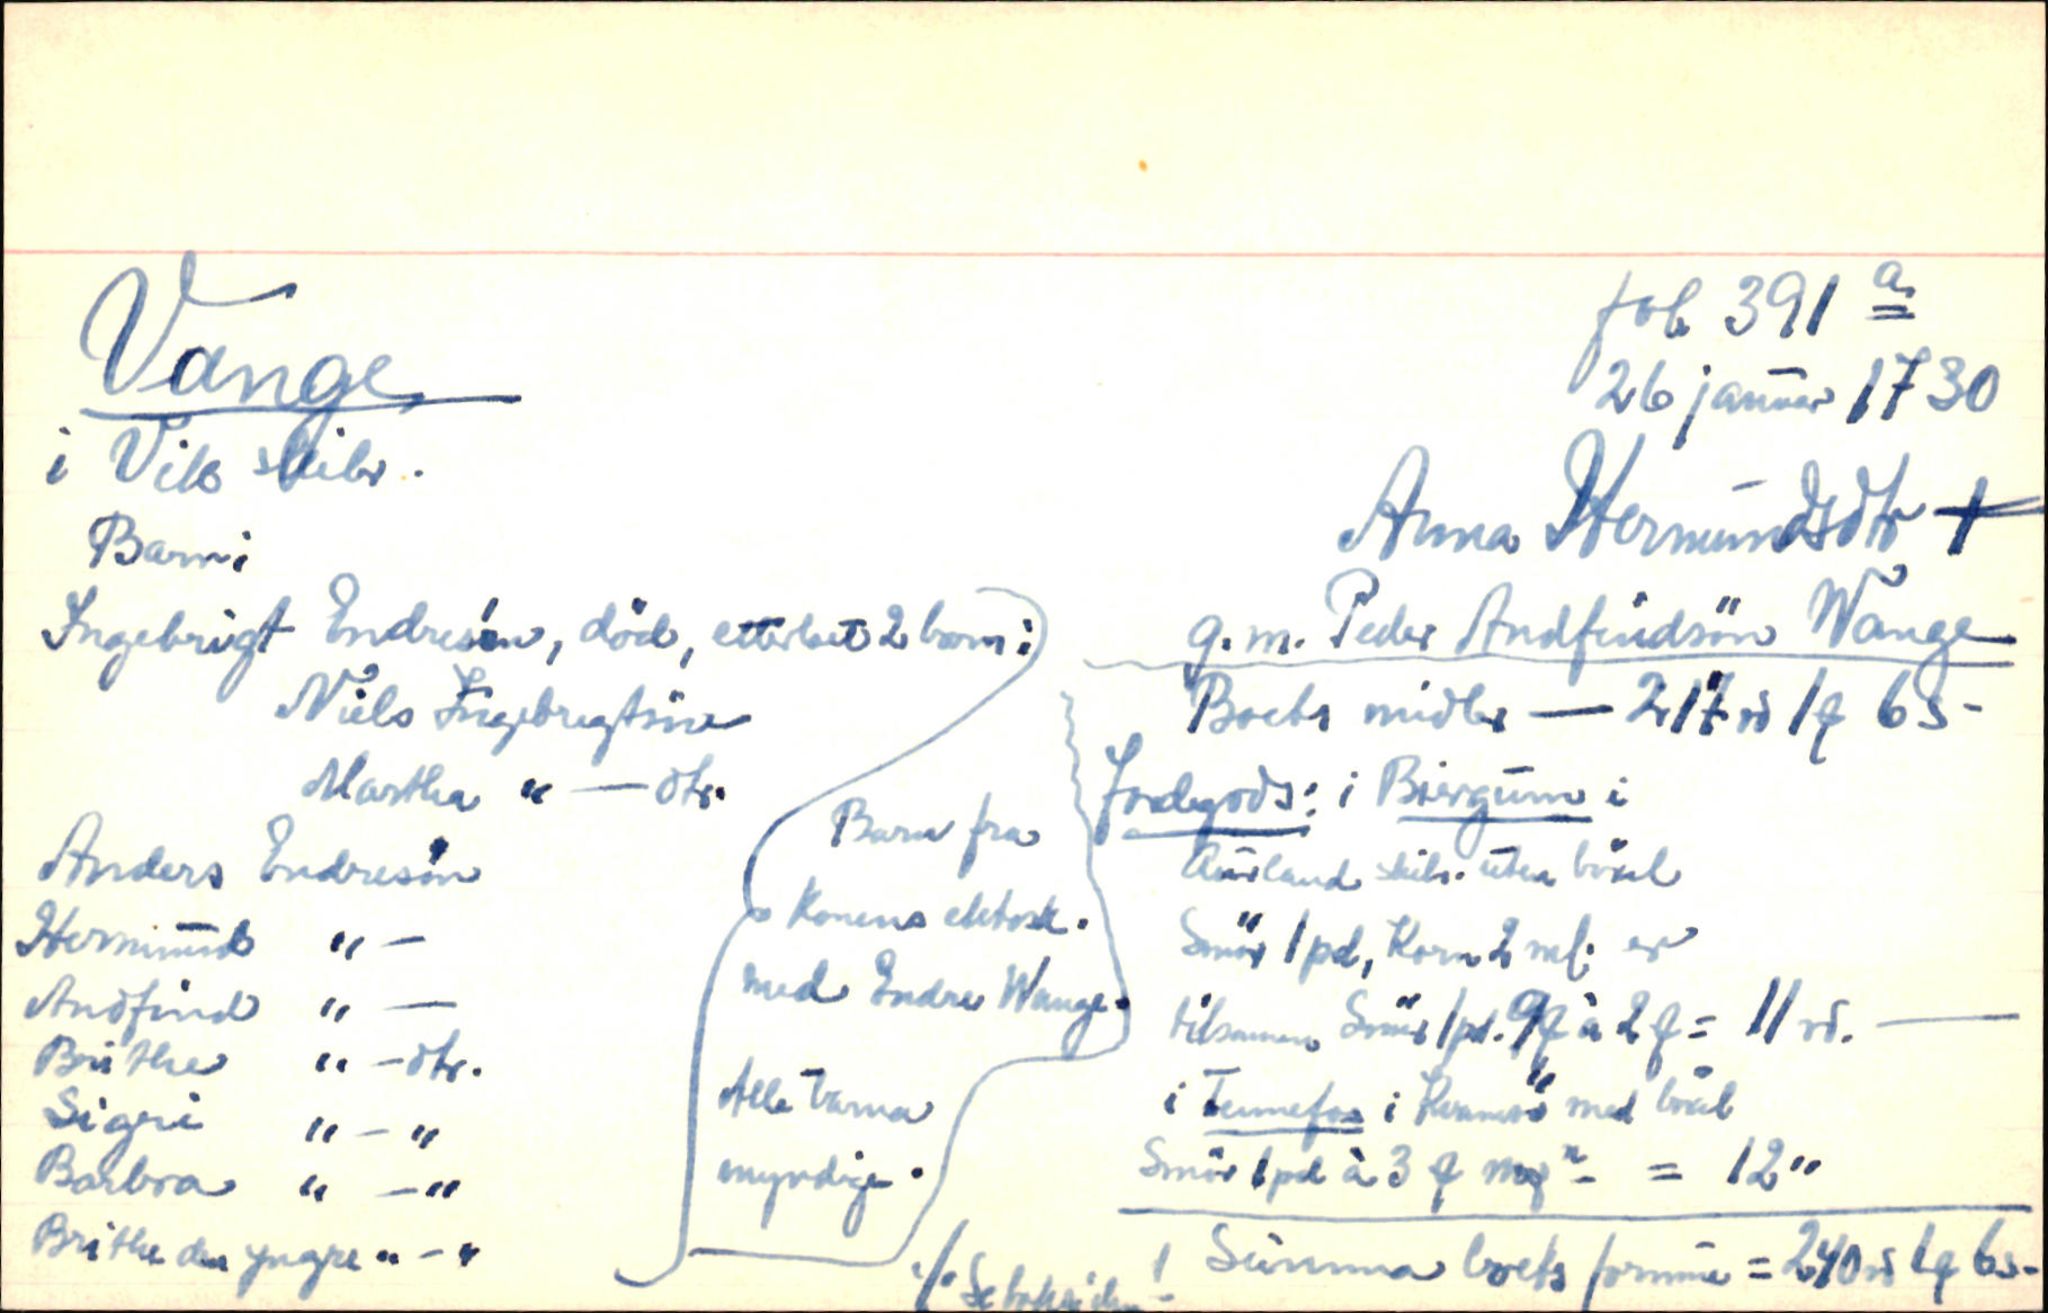 Vange
i Vik skibr.
Barn:
Ingebrigt Endresön, död, etterlat 2 barn:
Niels Ingebrigtsön
Martha " — dtr.
Anders Endresön
Hermund " —
Andfind " —
Brithe " — dtr.
Sigri " — "
Barbra " — "
Brithe den yngre " — "
Barn fra
Konens ektesk.
med Endre Wange.
Alle barna
myndige.
fol. 391 a
26 januar 1730
Anna Hermundsdtr +
g. m. Peder Andfindsön Wange
Boets midler — 217 rd 1 q 6 s -
Jordegods: i Biergum i
Aurland skibr. uten böxel
Smör 1 pd, Korn 2 mf: er
tilsammen Smör 1 pd. 9 q à 2 q = 11 rd. —
i Tennefos i Kvamsö med böxel
Smör 1 pd à 3 q = 12 "
Summa boets formue = 240 rd 1 q 6 s -
./. Se baksiden !